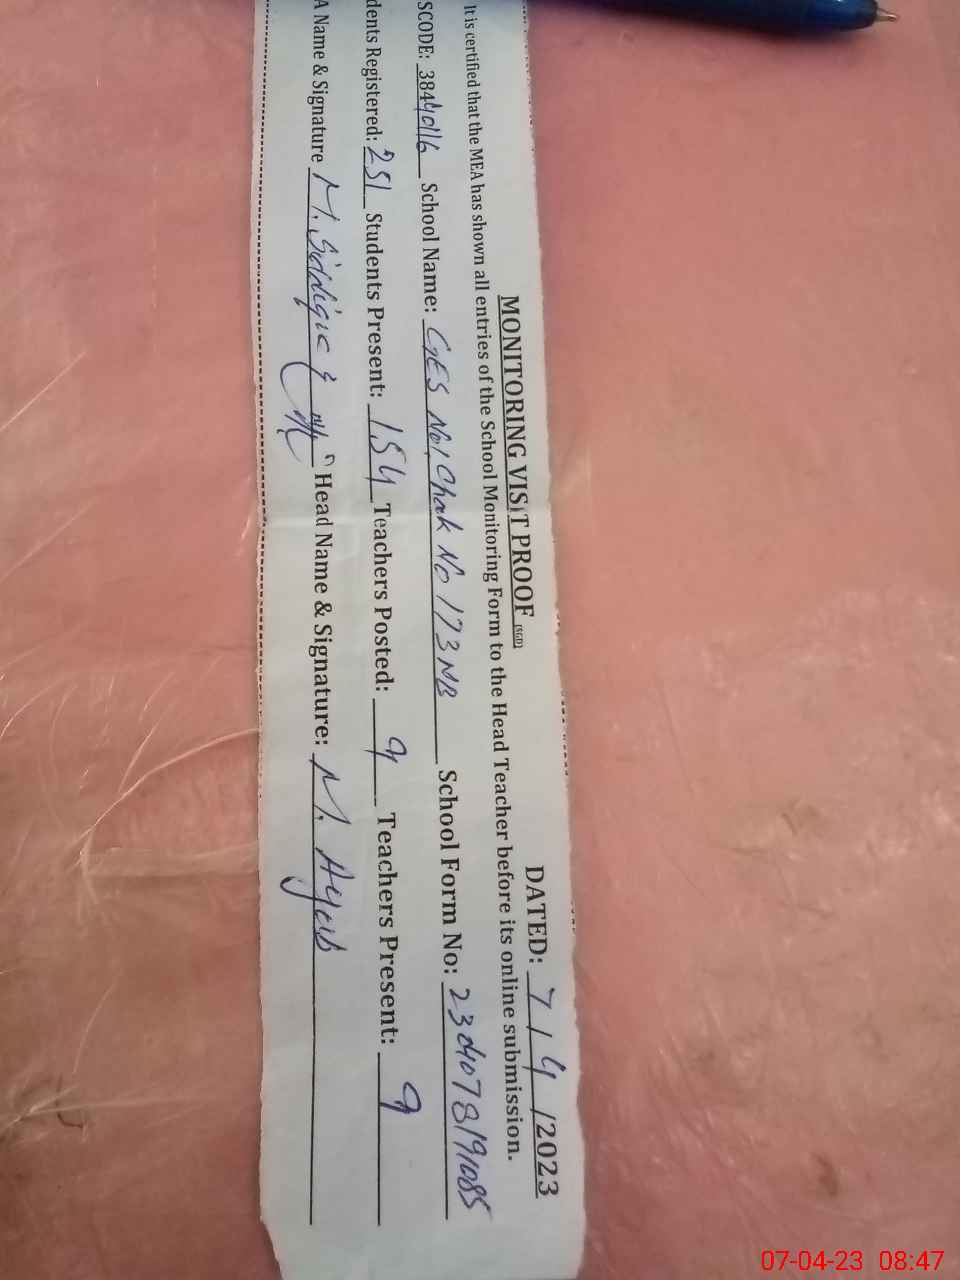 MONITORING VISIT PROOF (SGD) DATED: 7/4/2023
It is certified that the MEA has shown all entries of the School Monitoring Form to the Head Teacher before its online submission.
SCODE: 38440116 School Name: GES No1, Chak No 173 NB School Form No:
dents Registered: 251 Students Present: 154 Teachers Posted: 9 Teachers Present: 9
A Name & Signature M. Siddique Head Name & Signature: M. Ayub
07-04-23 08:47